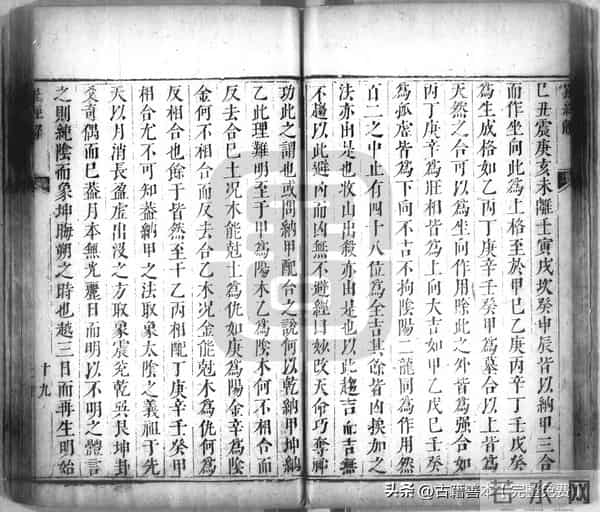 巳丑震庚亥未離壬寅戌坎癸申辰皆以納甲三合
而作坐向此為上格至於甲巳乙庚丙辛丁壬戊癸
為生成格如乙丙丁庚辛壬癸甲為墓合以上皆為
天然之合可以為生向作用除此之外皆為強合如
丙丁庚辛為旺相皆為上向大吉如甲乙戊巳壬癸
為孤虛皆為下向不吉不拘陰陽二龍同為作用然
百二之中止有四十八位為全吉其餘皆凶挨加之
法亦由是也收山出殺亦由是也以此趨吉而吉無
不趨以此避凶而凶無不避經曰妙改天命巧奪神
功此之謂也或問納甲配合之說何以乾納甲坤納
乙此理難明至于甲為陽木乙為陰木何不相合而
反去合巳土况木能尅土為仇如庚為陽金辛為陰
金何不相合而反去合乙木况金能尅木為仇何為
反相合也餘于皆然至于乙丙相配丁庚辛壬癸甲
相合尤不可知葢納甲之法取象太陰之義祖于先
天以月消長盈虛出沒之方取象震兌乾巽艮坤卦
爻奇偶而巳葢月本無光麗日而明以不明之體言
之則純陰而象坤晦朔之時也越三日而再生明始
十九
头条 @古籍善本